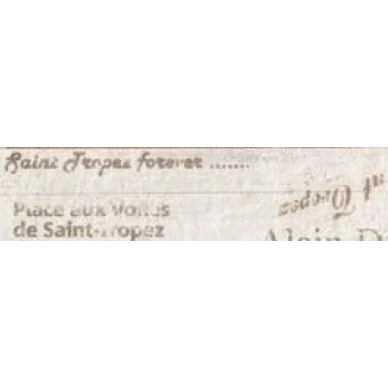 Saint Tropez forever .......
Place aux Voiles
de Saint-Tropez
Tropez
Alain